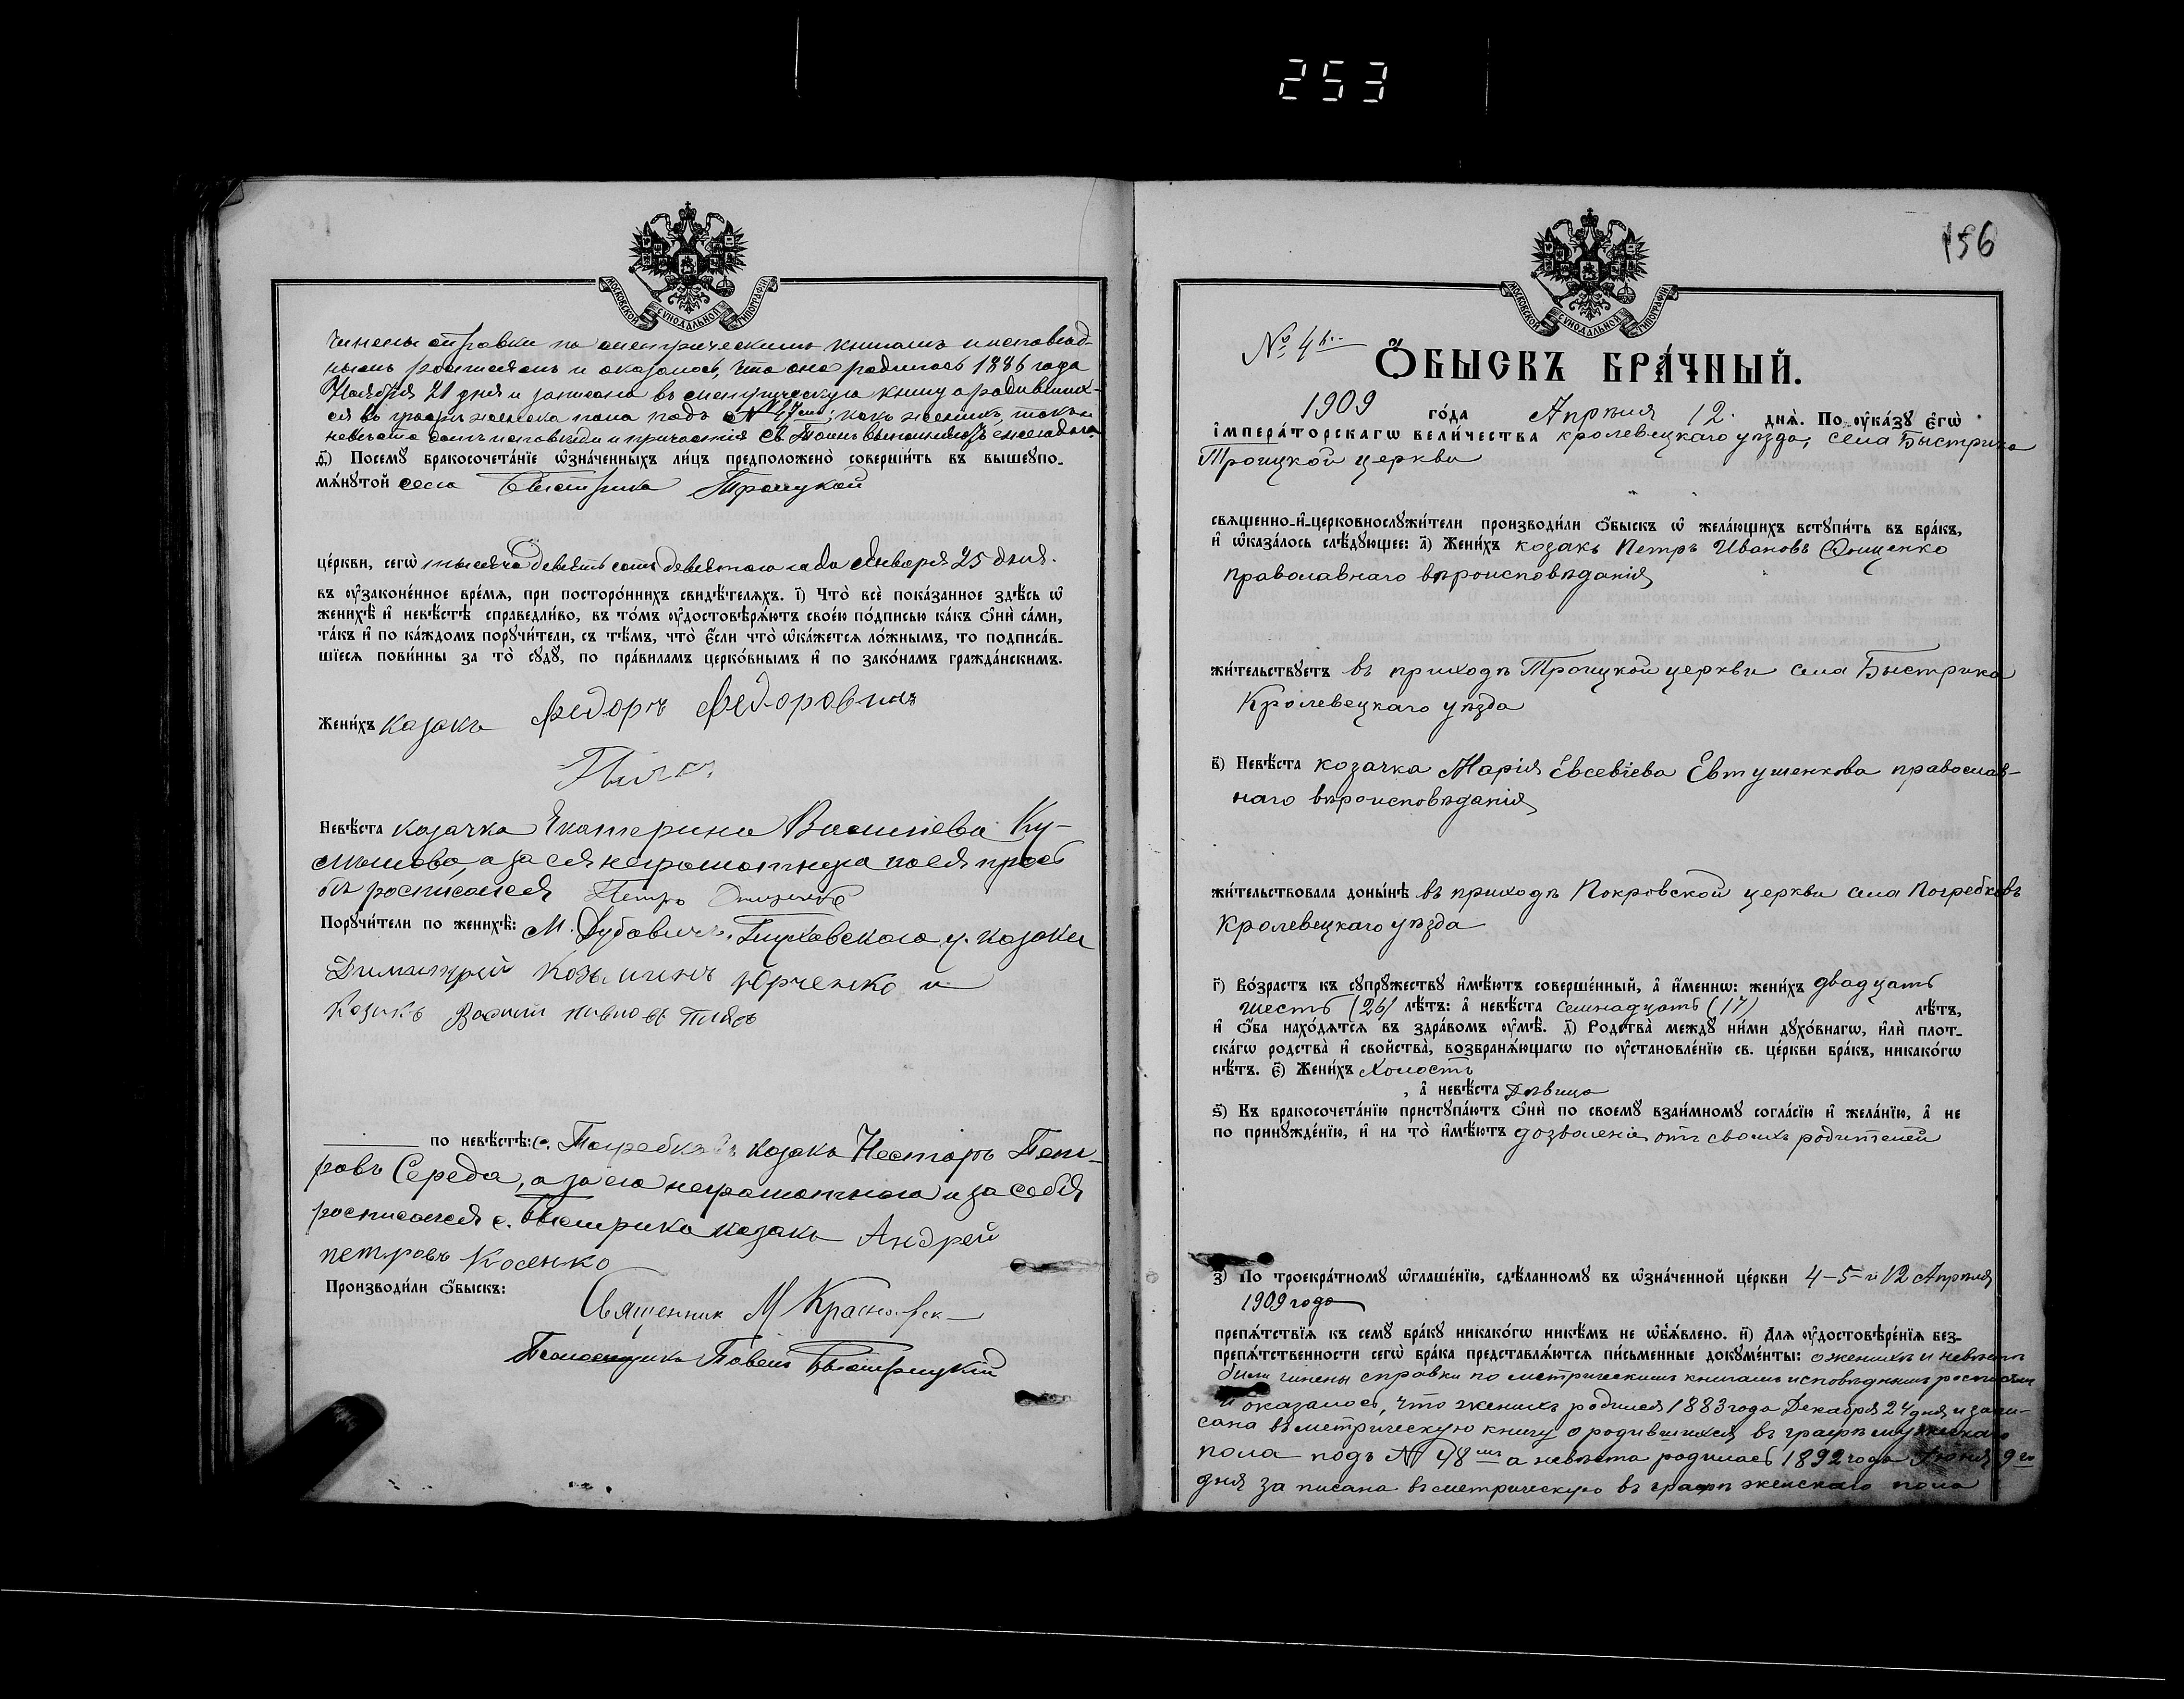 253
МОСКОВСКОЙ СѴНОДАЛЬНОЙ ТИПОГРАФІИ
чинены справки по метрическимъ книгамъ и исповѣд-
нымъ росписямъ и оказалось, что она родилась 1886 года
Ноября 21 дня и записана въ метрическую книгу о родивших-
ся въ графѣ женска пола подъ № 47мъ; какъ женихъ, такъ и
невѣста долгъ исповѣди и причастія Св. Таинъ выполняютъ ежегодно.
д҃) Посемꙋ бракосочета́нїе ѡ҆зна́ченныхъ ли́цъ предположено̀ соверши́ть въ вышеꙋпо-
мѧ́нꙋтой села Быстрика Троицкой
це́ркви, сегѡ̀ тысяча девятьсотъ девятого года Января 25 дня.
въ ᲂу҆зако́не́нное вре́мѧ, при посторо́ннихъ свидѣ́телѧхъ. і҃) Что̀ всѐ пока́занное здѣ́сь ѡ҆
женихѣ̀ и҆ невѣ́стѣ справедли́во, въ то́мъ ᲂу҆достовѣрѧ́ютъ свое́ю по́дписью ка́къ ѻ҆нѝ са́ми,
та́къ и҆ по ка́ждомъ порꙋчи́тели, съ тѣ́мъ, что̀ є҆́сли что̀ ѡ҆ка́жетсѧ ло́жнымъ, то подписа́в-
шїесѧ пови́нны за то̀ сꙋдꙋ̀, по пра́виламъ церко́внымъ и҆ по зако́намъ гражда́нскимъ.
Жени́хъ казакъ Федоръ Федоровичъ
Невѣ́ста казачка Екатерина Василіева Ку-
а за ея неграмотную по ея прось
бѣ росписался Петръ
Порꙋчи́тели по женихѣ̀: М. Дубовичъ, Глуховскаго у. казаки
Димитрій Козьминъ Юрченко и
Козакъ
по невѣ́стѣ: с. Погребковъ казакъ Несторъ Пет-
ровъ Середа, а за его неграмотного и за себя
росписался с. Быстрика казакъ Андрей
петровъ Косенко
Производи́ли ѻ҆́быскъ:
Священник М
Псаломщикъ Павелъ Быстрицкій
156
МОСКОВСКОЙ СѴНОДАЛЬНОЙ ТИПОГРАФІИ
№ 4й
Ѻ҆́БЫСКЪ БРА́ЧНЫЙ.
1909 го́да Апрѣля 12. днѧ̀. По ᲂу҆ка́зꙋ є҆гѡ̀
і҆мпера́торскагѡ вели́чества кролевецкаго уѣзда, села Быстрика
Троицкой церкви
свѧще́нно-и҆-церковнослꙋжи́тели производи́ли ѻ҆́быскъ ѡ҆ жела́ющихъ встꙋпи́ть въ бра́къ,
и҆ ѡ҆каза́лось слѣ́дꙋющее: а҃) Жени́хъ козакъ Петръ Ивановъ Онищенко
православнаго вѣроисповѣданія
жи́тельствꙋетъ въ приходѣ Троицкой церкви села Быстрика
Кролевецкаго уѣзда
в҃) Невѣ́ста козачка Марія Евсевіева Евтушенкова православ-
наго вѣроисповѣданія
жи́тельствовала доны́нѣ въ приходѣ Покровской церкви села Погребковъ
Кролевецкаго уѣзда
г҃) Во́зрастъ къ сꙋпрꙋ́жествꙋ и҆мѣ́ютъ соверше́нный, а҆ и҆́меннѡ: жени́хъ двадцать
шесть (26) лѣ́тъ: а҆ невѣ́ста семнадцать (17) лѣ́тъ,
и҆ ѻ҆́ба нахо́дѧтсѧ въ здра́вомъ ᲂу҆мѣ̀. д҃) Родства̀ междꙋ ни́ми дꙋхо́внагѡ, и҆лѝ плот-
ска́гѡ родства̀ и҆ сво́йства̀, возбранѧ́ющагѡ по ᲂу҆становле́нїю св. це́ркви бра́къ, никако́гѡ
нѣ́тъ. є҃) Жени́хъ Холостъ
, а҆ невѣ́ста Дѣвица
ѕ҃) Къ бракосочета́нїю пристꙋпа́ютъ ѻ҆нѝ по своемꙋ̀ взаи́мномꙋ согла́сїю и҆ жела́нїю, а҆ не
по принꙋжде́нїю, и҆ на то̀ и҆мѣ́ютъ дозволеніе отъ своихъ родителей
з҃) По троекра́тномꙋ ѡ҆глаше́нїю, сдѣ́ланномꙋ въ ѡ҆зна́ченной це́ркви 4-5-и 12 Апрѣля
1909 года
препѧ́тствїѧ къ семꙋ̀ бра́кꙋ никако́гѡ никѣ́мъ не ѡ҆б̾ѧ́влено. и҃) Длѧ ᲂу҆достовѣре́нїѧ без-
препѧ́тственности сегѡ̀ бра́ка представлѧ́ютсѧ пи́сьменные докꙋме́нты: о женихѣ и невѣстѣ
были чинены справки по метрическимъ книгамъ исповѣднымъ росписямъ
и оказалось, что женихъ родился 1883 года Декабря 24 дня и запи-
сана въ метрическую книгу о родившихся въ графѣ мужскаго
пола подъ № 48мъ а невѣста родилась 1892 года Июня 9го
дня за писана въ метрическую въ графѣ женскаго пола